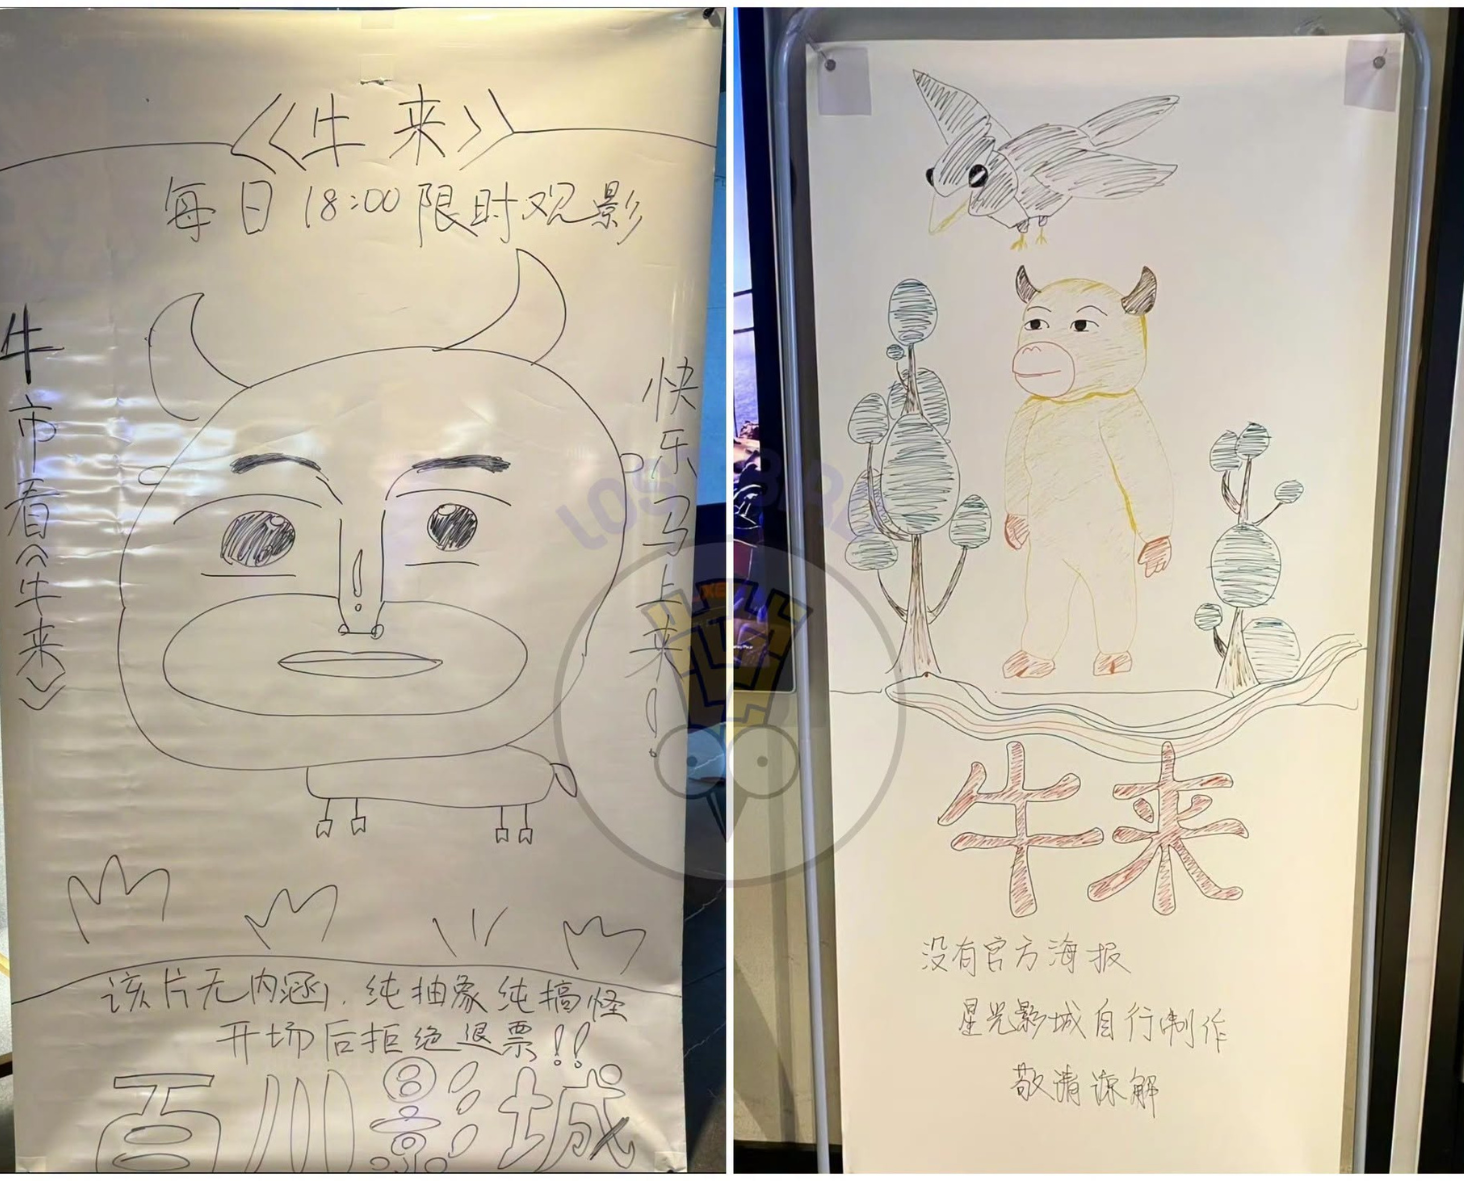 《牛来》
每日18:00限时观影
牛市看《牛来》
快乐马上来！
该片无内涵，纯抽象纯搞怪
开场后拒绝退票!!
百川影城
牛来
没有官方海报
星光影城自行制作
敬请谅解